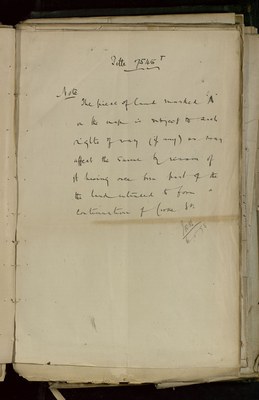 Title 7545
Note
The piece of land marked "A"
on the map is subject to such
rights of way (if any) as may
affect the same by reason of
it having once been part of the
the land intended to form a
continuation of Cross St.